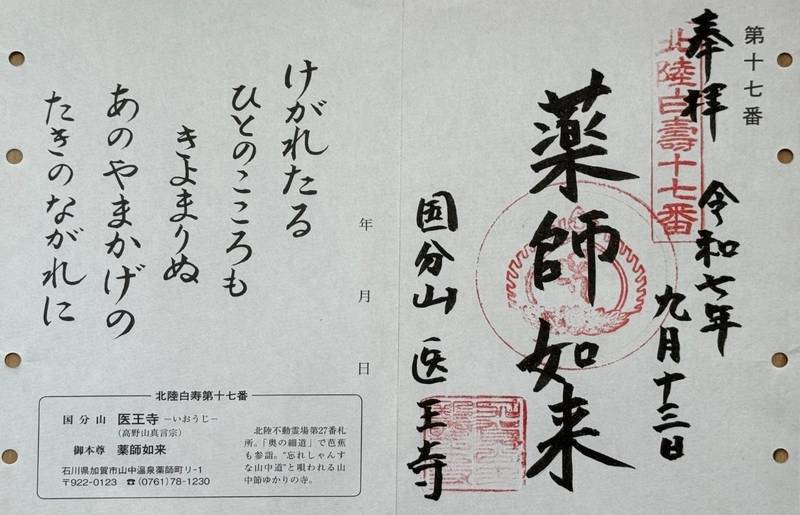 第十七番
奉拝
北陸白壽十七番
令和七年
九月十三日
薬師如来
国分山 医王寺
年 月 日
けがれたる
ひとのこころも
きよまりぬ
あのやまかげの
たきのながれに
北陸白寿第十七番
国分山 医王寺 −いおうじ−
(高野山真言宗)
御本尊 薬師如来
石川県加賀市山中温泉薬師町リ-1
〒922-0123 ☎(0761)78-1230
北陸不動霊場第27番札
所。「奥の細道」で芭蕉
も参詣。“忘れしゃんす
な山中道”と唄われる山
中節ゆかりの寺。